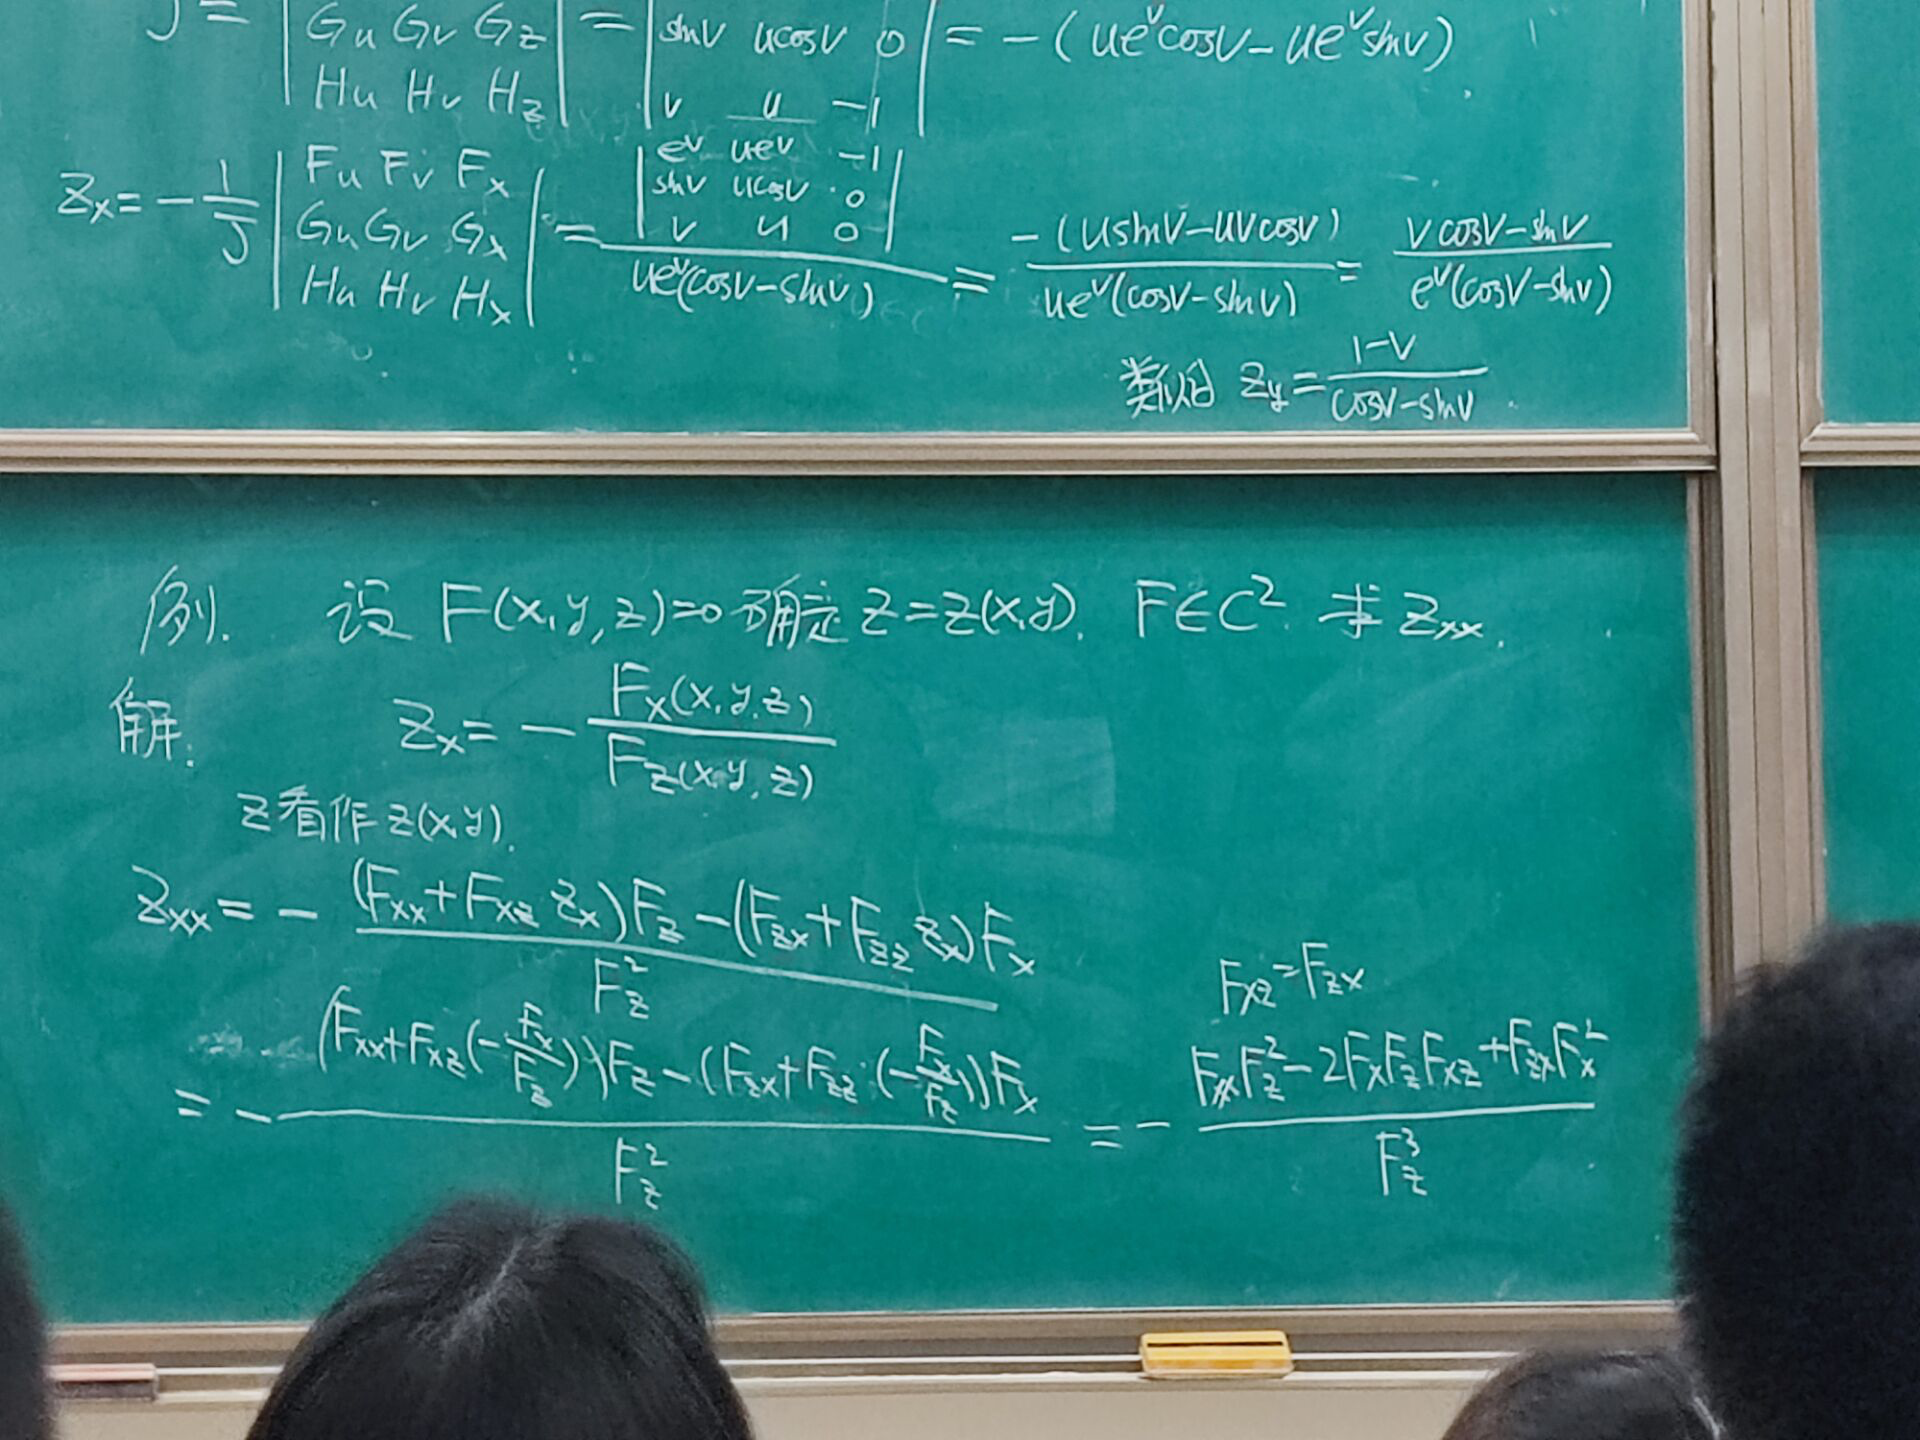 J = | Gu Gv Gz | = | sinv ucosv 0 | = -(ue^v cosv - ue^v sinv)
Hu Hv Hz   v u -1
Zx = -1/J | Fu Fv Fx ; Gu Gv Gx ; Hu Hv Hx | = | e^v ue^v -1 ; sinv ucosv 0 ; v u 0 | / ue^v(cosv - sinv) = -(usinv - uvcosv) / ue^v(cosv - sinv) = (vcosv - sinv) / e^v(cosv - sinv)
类似 Zy = (1-v) / (cosv - sinv).
例. 设 F(x,y,z)=0 确定 z=z(x,y). F∈C². 求 Zxx.
解. Zx = - Fx(x,y,z) / Fz(x,y,z)
z看作z(x,y).
Zxx = - ((Fxx+Fxz Zx)Fz - (Fzx+Fzz Zx)Fx) / Fz²
Fxz=Fzx
= - ((Fxx+Fxz(-Fx/Fz))Fz - (Fzx+Fzz·(-Fx/Fz))Fx) / Fz² = - (FxxFz² - 2FxFzFxz + FzxFx²) / Fz³